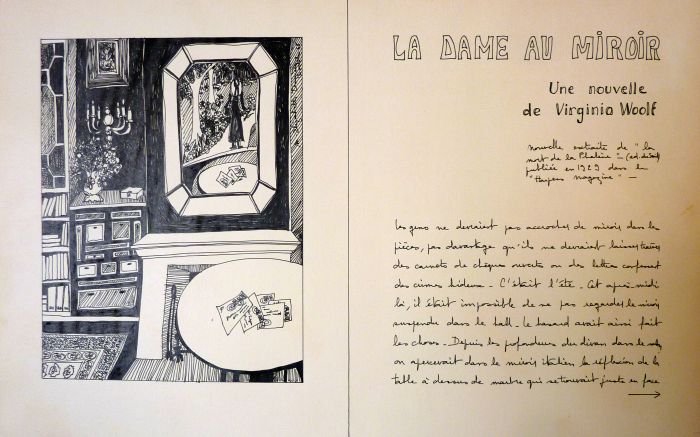 LA DAME AU MIROIR
Une nouvelle
de Virginia Woolf
nouvelle extraite de "la
mort de la Phalène" -
publiée en 1929 dans le
"Harpers Magazine" -
Les gens ne devraient pas accrocher de miroir dans les
pièces, pas davantage qu'ils ne devraient laisser traîner
des carnets de chèques ouverts ou des lettres confessant
des crimes hideux - C'était l'été - Cet après-midi
là, il était impossible de ne pas regarder le miroir
suspendu dans le hall - Le hasard avait ainsi fait
les choses - Depuis les profondeurs du divan dans le
on apercevait dans le miroir italien la réflexion de la
table à dessus de marbre qui se trouvait juste en face